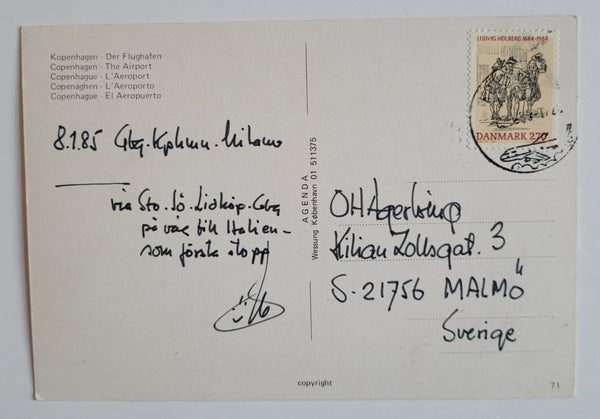 Kopenhagen · Der Flughafen
Copenhagen · The Airport
Copenhague · L'Aeroport
Copenaghen · L'Aeroporto
Copenhague · El Aeropuerto
8.1.85 Gbg. Kphmn. Milano
via Sto. Jö. Lidköp. Gbg
på väg till Italien -
som första stopp
AGENDA
Wessung København 01 511375
LUDVIG HOLBERG 1684-1984
DANMARK 2.70
OH Agerbring
Kilian Zollsgat. 3
S-21756 MALMÖ
Sverige
copyright
71